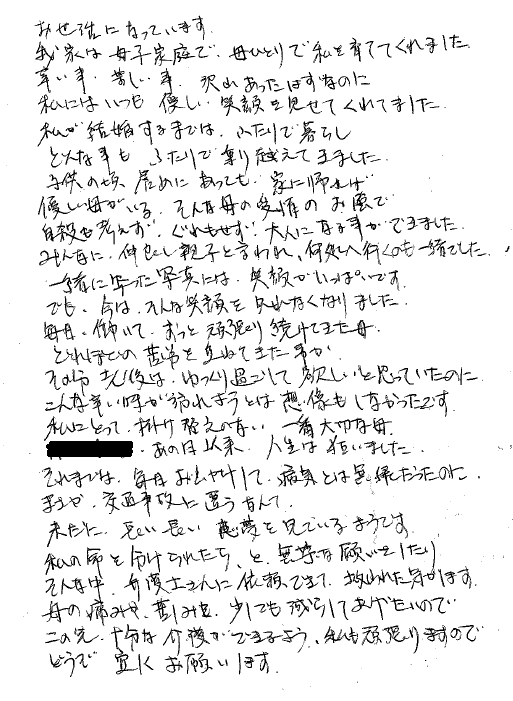 お世話になっています。
我家は母子家庭で、母ひとりで私を育ててくれました。
辛い事、苦しい事、沢山あったはずなのに
私にはいつも優しい笑顔を見せてくれてました。
私が結婚するまでは、ふたりで暮らし
どんな事もふたりで乗り越えて来ました。
子供の頃、居めにあっても、家に帰れば
優しい母がいる。そんな母の愛情のお蔭で
自殺も考えず、ぐれもせず、大人になる事ができました。
みんなに、仲良し親子と言われ、何処へ行くのも一緒でした。
一緒に写った写真には、笑顔がいっぱいです。
でも、今は、そんな笑顔も見れなくなりました。
毎日、働いて、ずっと頑張り続けてきた母。
どれほどの苦労を重ねてきた事か。
その分、老後は、ゆっくり過ごして欲しいと思っていたのに
こんな辛い時が訪れようとは想像もしなかったです。
私にとって、掛け替えのない、一番大切な母。
あの日以来、人生は狂いました。
それまでは、毎日おしゃれして、病気とは無縁だったのに
まさか、交通事故に遭うなんて。
未だに、長い長い悪夢を見ているようです。
私の命を分けられたら、と、無茶な願いをしたり
そんな中、弁護士さんに依頼できて、救われた気がします。
母の痛みや、苦しみを、少しでも減らしてあげたいので
この先、十分な介護ができるよう、私も頑張りますので
どうぞ宜しくお願いします。